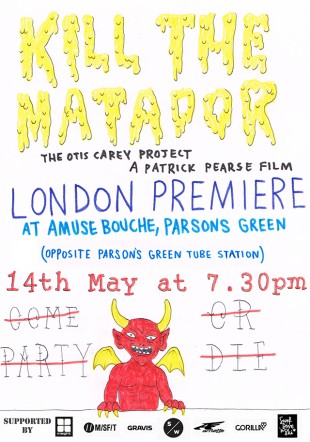 KILL THE
MATADOR
THE OTIS CAREY PROJECT
A PATRICK PEARSE FILM
LONDON PREMIERE
AT AMUSE BOUCHE, PARSONS GREEN
(OPPOSITE PARSON'S GREEN TUBE STATION)
14th May at 7.30pm
COME OR
PARTY DIE
SUPPORTED BY M/SF/T GRAVIS S/W GORILLA